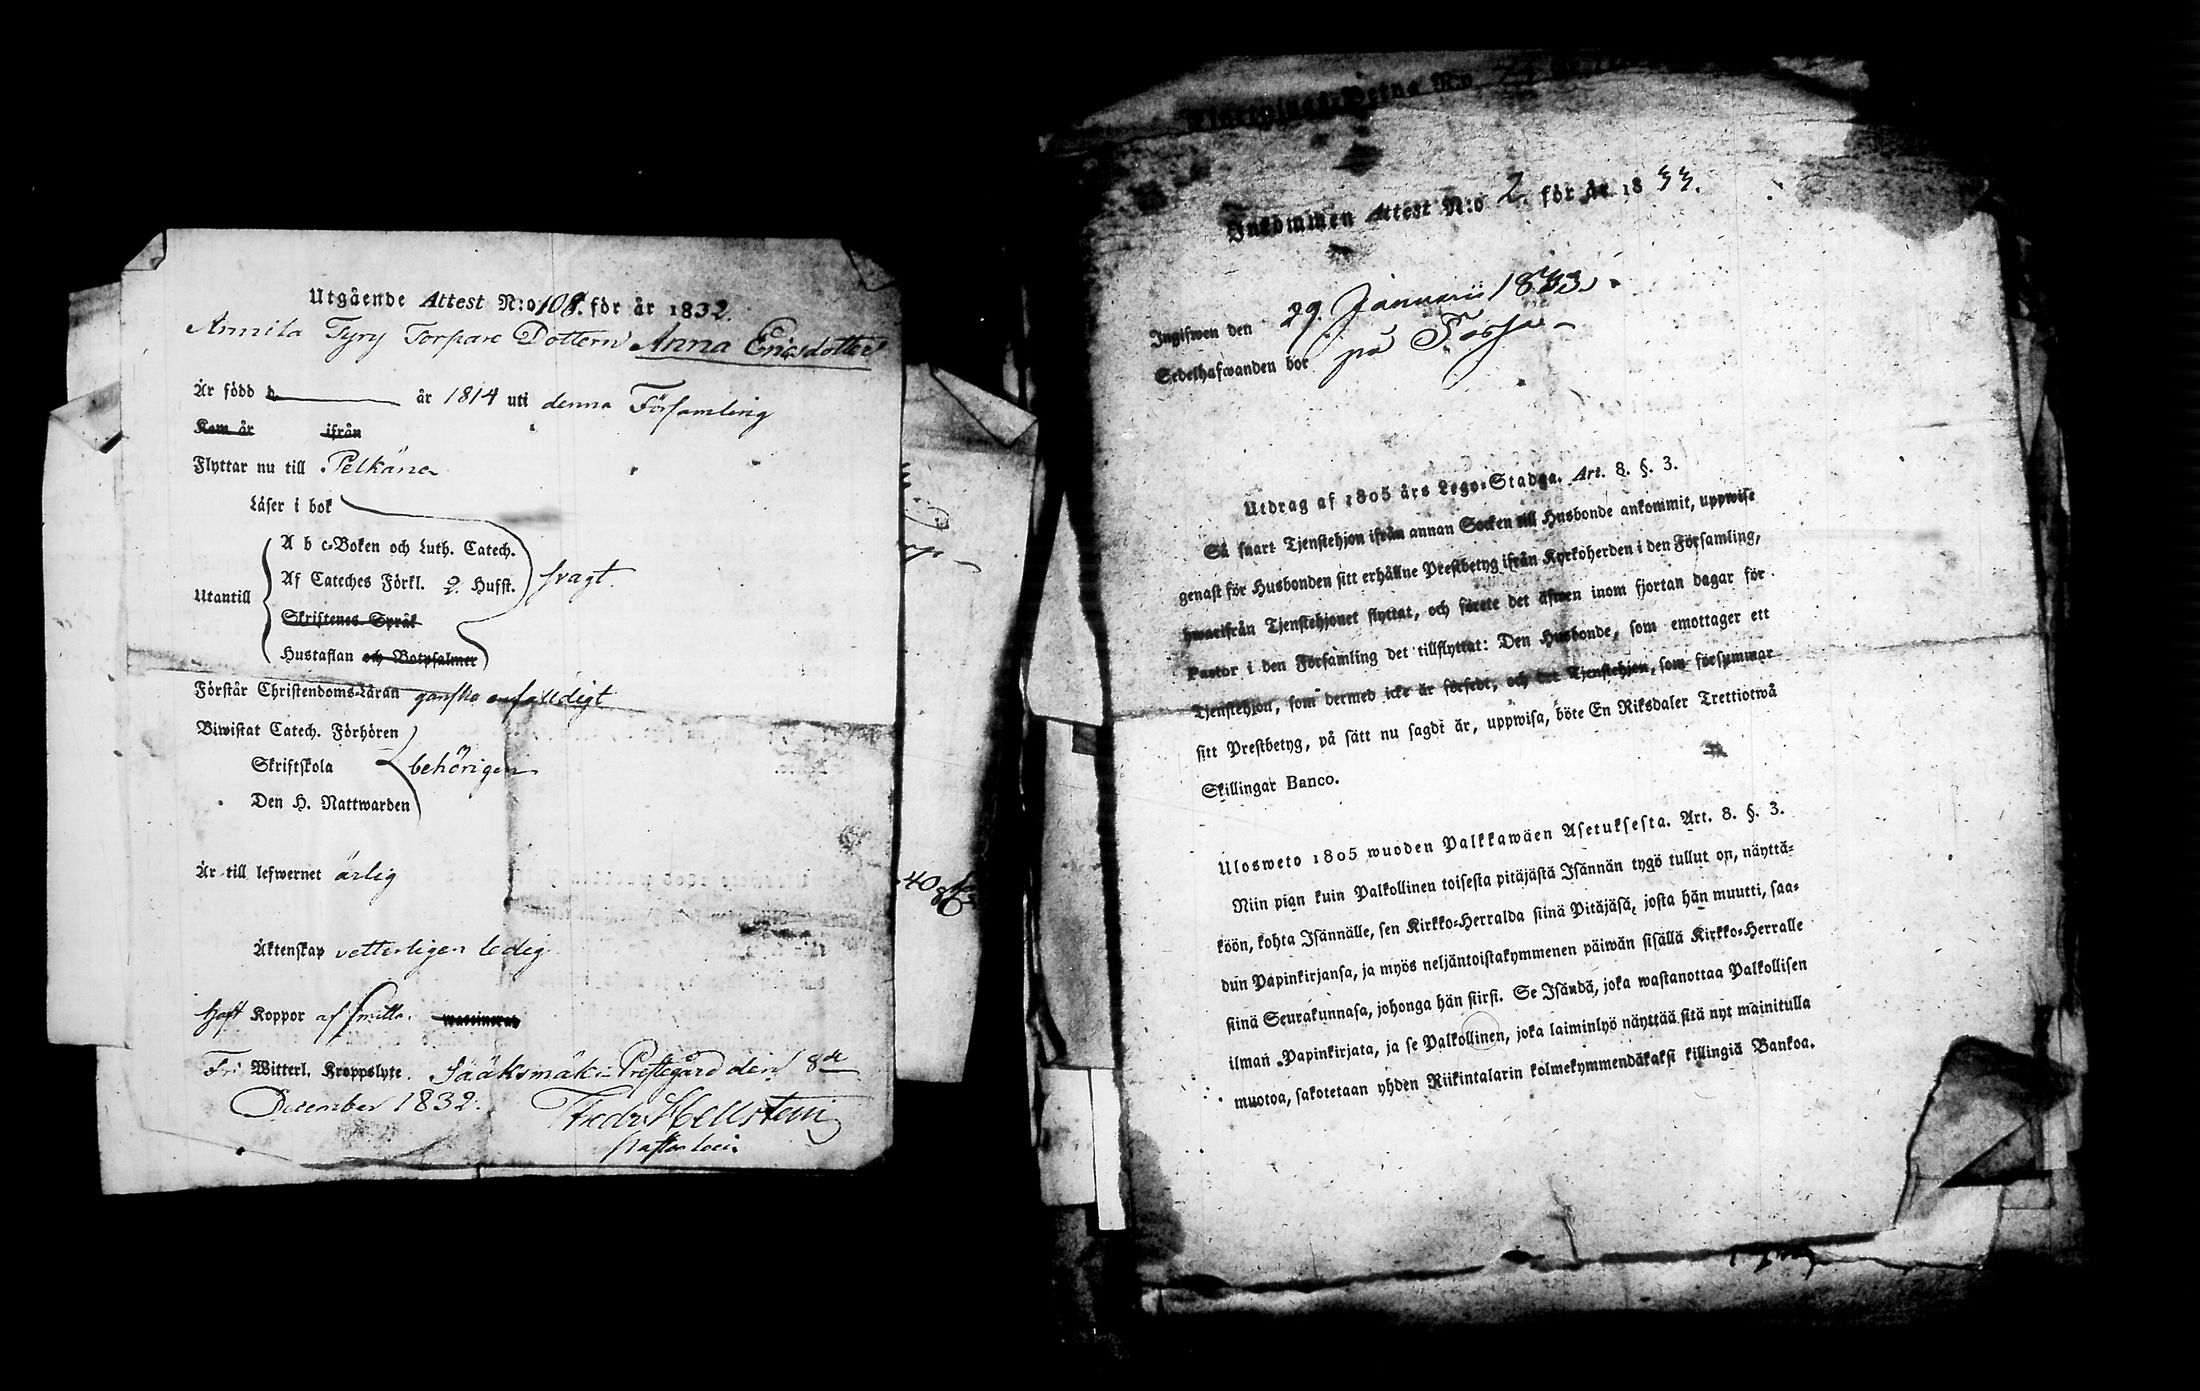 Utgående Attest N:o 108. för år 1832.
Annila Tyry Torpare Dottern Anna Ericsdotter
Är född d. år 1814 uti denna Församling
Kom år ifrån
Flyttar nu till Pelkäne
Läser i bok
A b c-Boken och Luth. Catech.
Af Cateches Förkl. 2. Hufst. svagt.
Utantill
Skriftenes Språk
Hustaflan och Botpsalmer
Förstår Christendoms-Läran ganska enfalldigt
Biwistat Catech. Förhören
Skriftskola behörigen
Den H. Nattwarden
Är till lefwernet ärlig
Äktenskap vetterligen ledig
Haft Koppor af smitta. waccinerad
Fri Witterl. Kroppslyte. Sääksmäki Prestegård den 8de
December 1832. Fredr. Hellsten
Pastor loci.
40
N:o
Inkommen Attest N:o 2. för år 1833.
Ingifwen den 29. Januarii 1833.
Sedelhafwanden bor på
Utdrag af 1805 års Lego-Stadga. Art. 8. §. 3.
Så snart Tjenstehjon ifrån annan Socken till Husbonde ankommit, uppwise
genast för Husbonden sitt erhållne Prestbetyg ifrån Kyrkoherden i den Församling,
hwarifrån Tjenstehjonet flyttat, och förete det äfwen inom fjortan dagar för
Pastor i den Församling det tillflyttat: Den Husbonde, som emottager ett
Tjenstehjon, som dermed icke är försedt, och det Tjenstehjon, som försummar
sitt Prestbetyg, på sätt nu sagdt är, uppwisa, böte En Riksdaler Trettiotwå
Skillingar Banco.
Ulosweto 1805 wuoden Palkkawäen Asetuksesta. Art. 8. §. 3.
Niin pian kuin Palkollinen toisesta pitäjästä Isännän tygö tullut on, näyttä-
köön, kohta Isännälle, sen Kirkko-Herralda siinä Pitäjäsä, josta hän muutti, saa-
dun Papinkirjansa, ja myös neljäntoistakymmenen päiwän sisällä Kirkko-Herralle
siinä Seurakunnasa, johonga hän siirsi. Se Isändä, joka wastanottaa Palkollisen
ilman Papinkirjata, ja se Palkollinen, joka laiminlyö näyttää sitä nyt mainitulla
muotoa, sakotetaan yhden Riikintalarin kolmekymmendäkaksi killingiä Bankoa.